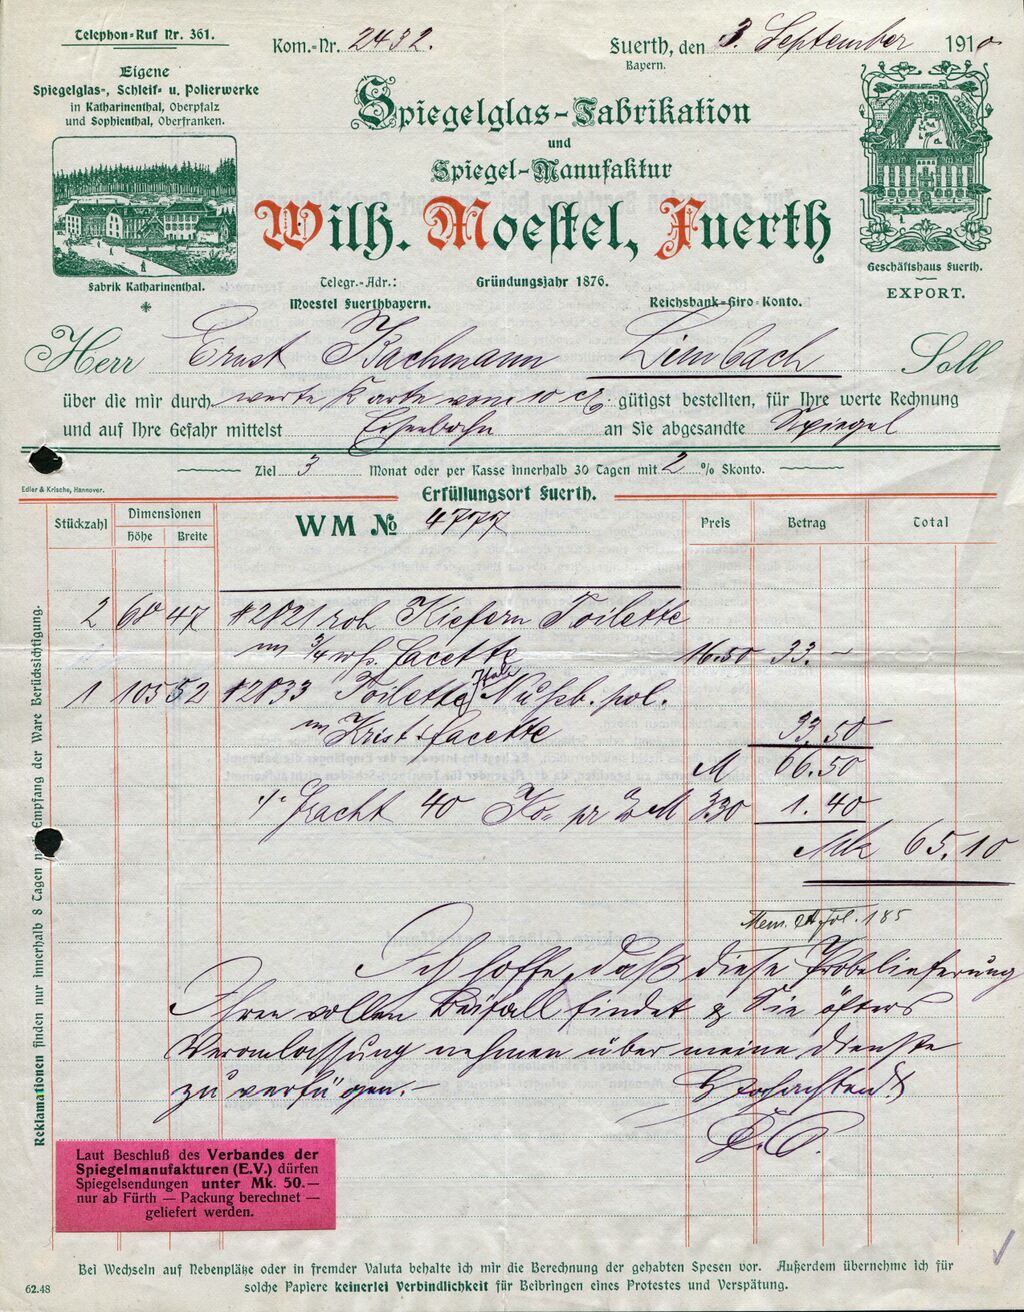 Telephon-Ruf Nr. 361.
Kom.-Nr. 2432.
Fuerth, den 3. September 1910
Bayern.
Eigene
Spiegelglas-, Schleif- u. Polierwerke
in Katharinenthal, Oberpfalz
und Sophienthal, Oberfranken.
Fabrik Katharinenthal.
Spiegelglas-Fabrikation
und
Spiegel-Manufaktur
Wilh. Moestel, Fuerth
Telegr.-Adr.:
Moestel Fuerthbayern.
Gründungsjahr 1876.
Reichsbank-Giro-Konto.
Geschäftshaus Fuerth.
EXPORT.
Herr Ernst Bachmann Limbach Soll
über die mir durch werte Karte vom 10 gütigst bestellten, für Ihre werte Rechnung
und auf Ihre Gefahr mittelst Eisenbahn an Sie abgesandte Spiegel
Ziel 3 Monat oder per Kasse innerhalb 30 Tagen mit 2 % Skonto.
Edler & Krische, Hannover.
Erfüllungsort Fuerth.
Stückzahl Dimensionen Höhe Breite WM No 4777 Preis Betrag Total
2 68 47 #2821 roh Kiefern Toilette
m 3/4 w. Facette 16.50 33.–
1 105 52 #2833 Toilette Nußb. pol.
m Krist. facette 33.50
M 66.50
Fracht 40 Ko pr M 3.30 1.40
Mk 65.10
Fol. 185
Ich hoffe, daß diese Probelieferung
Ihren vollen Beifall findet & Sie öfters
Veranlassung nehmen über meine Dienste
zu verfügen.–
Hochachtend
Reklamationen finden nur innerhalb 8 Tagen nach Empfang der Ware Berücksichtigung.
Laut Beschluß des Verbandes der
Spiegelmanufakturen (E.V.) dürfen
Spiegelsendungen unter Mk. 50.—
nur ab Fürth — Packung berechnet —
geliefert werden.
Bei Wechseln auf Nebenplätze oder in fremder Valuta behalte ich mir die Berechnung der gehabten Spesen vor. Außerdem übernehme ich für
solche Papiere keinerlei Verbindlichkeit für Beibringen eines Protestes und Verspätung.
62.48